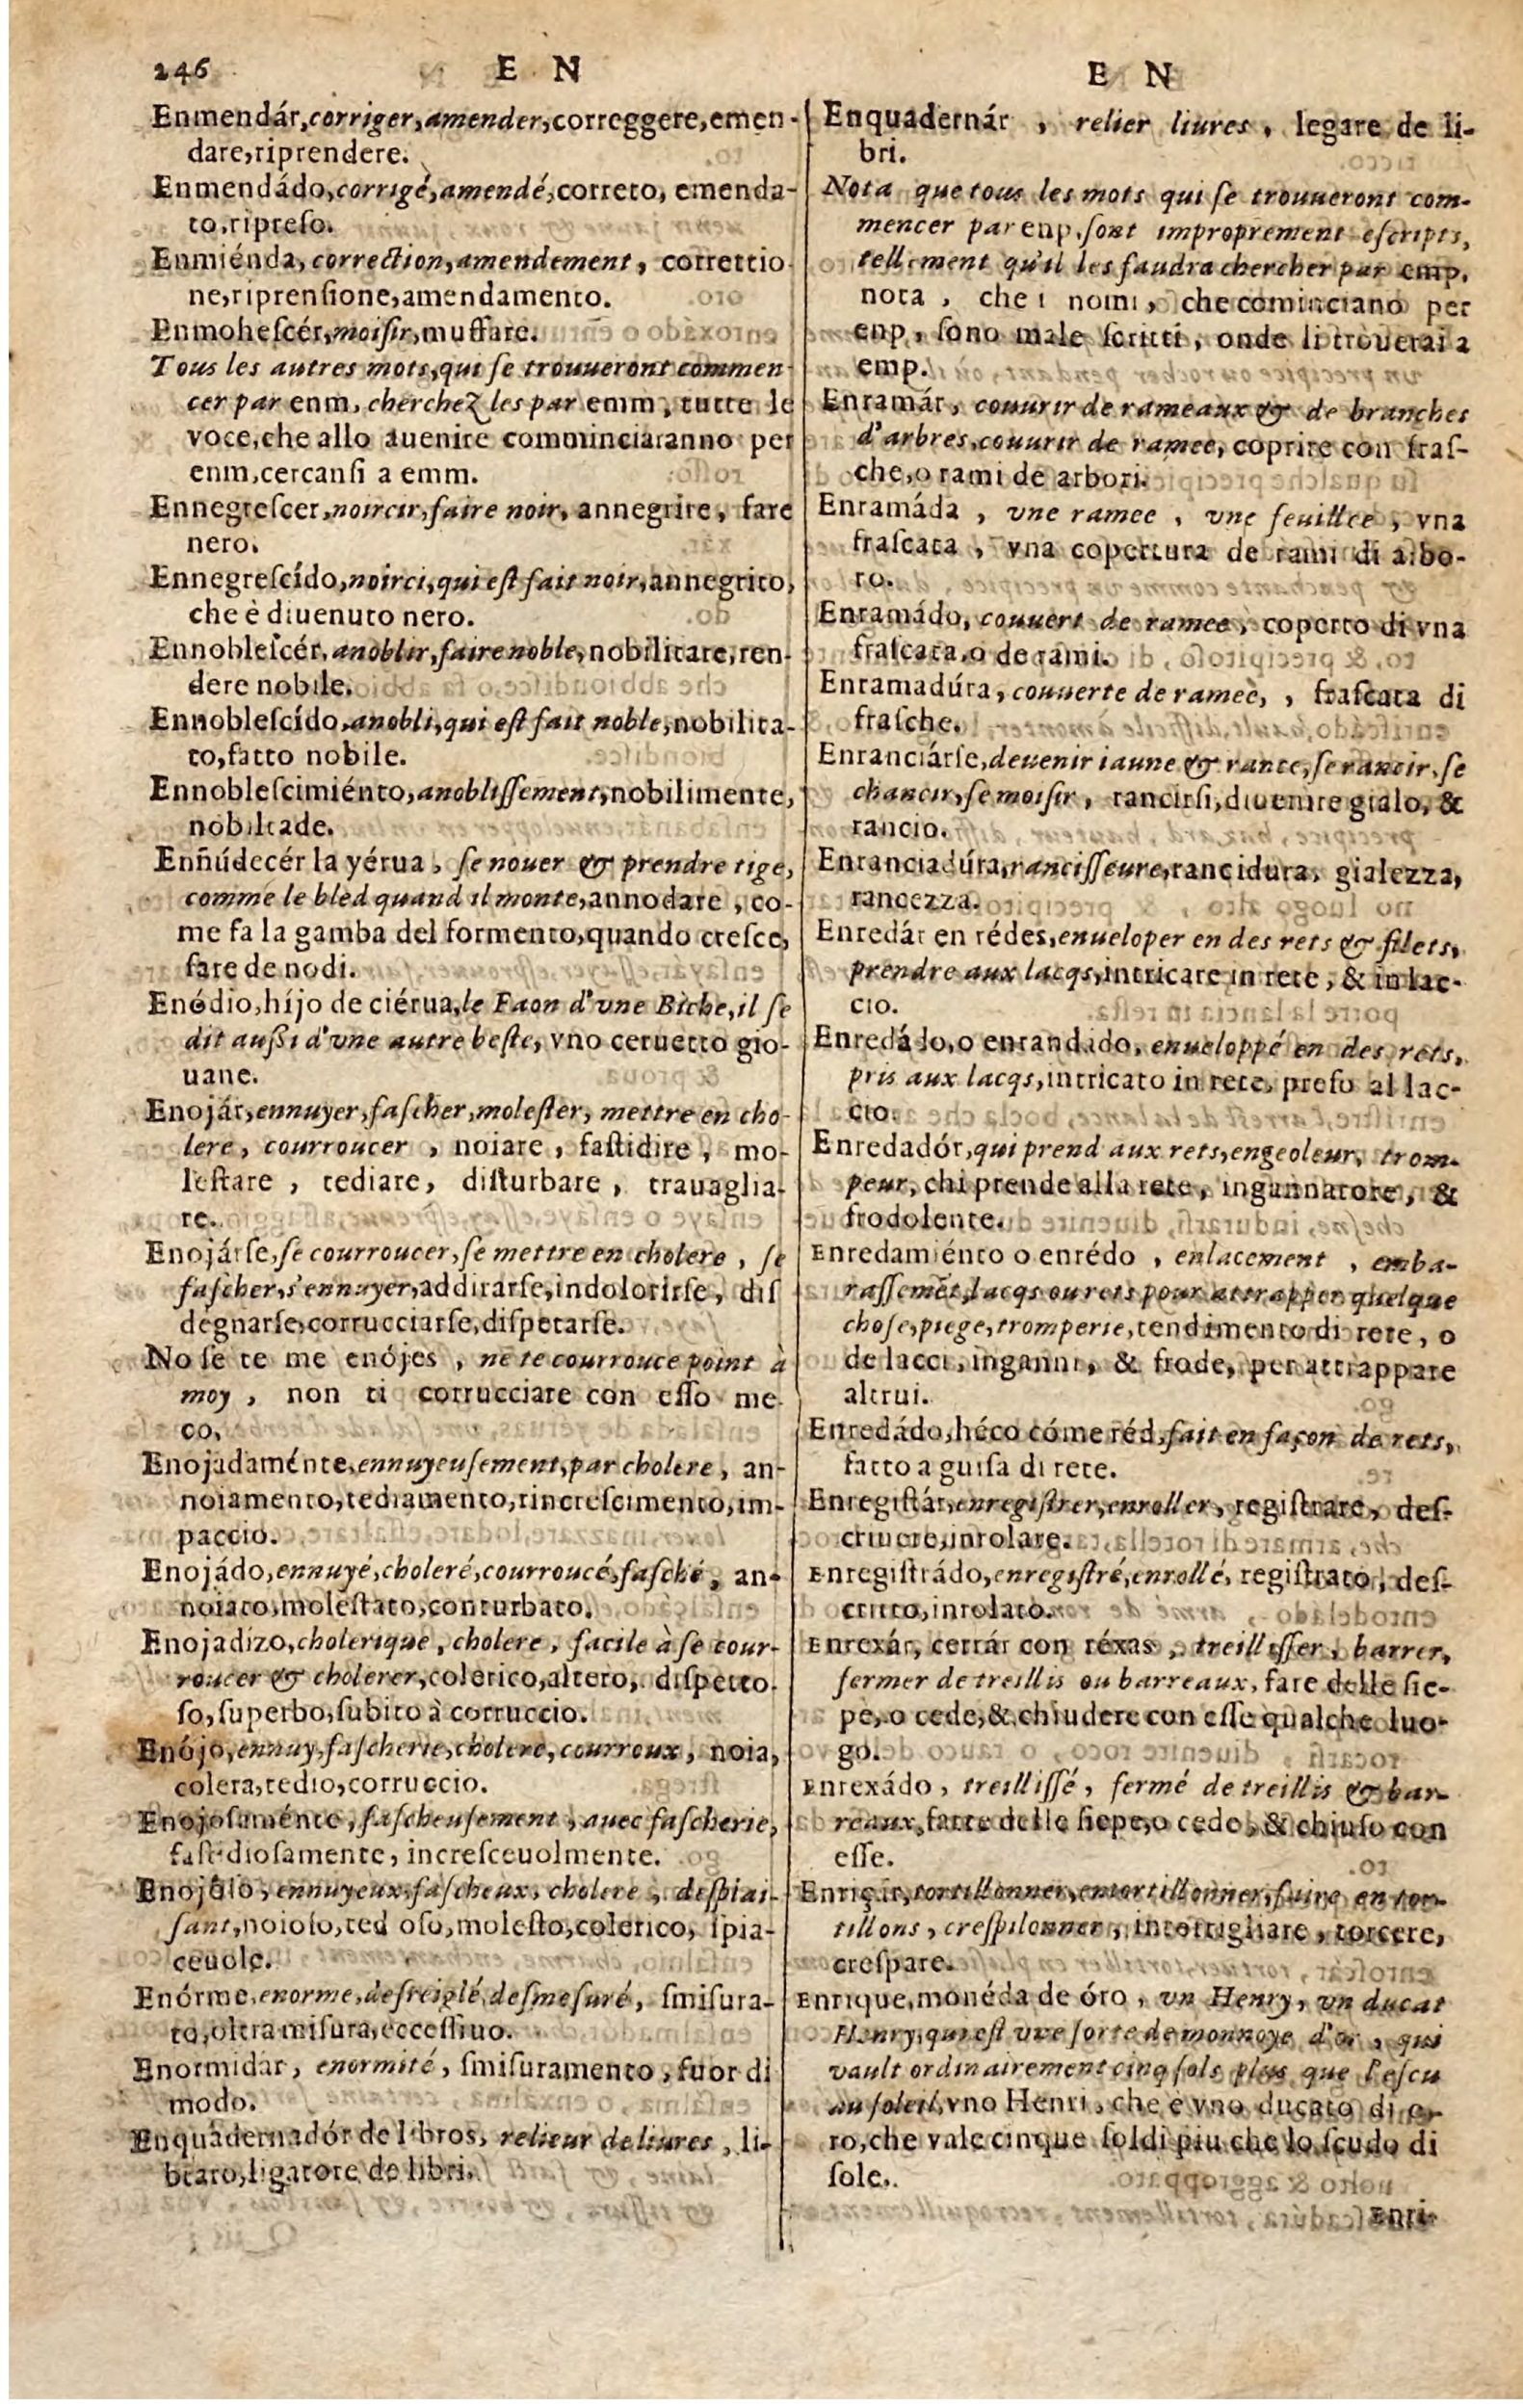 246 E N
Enmendár, corriger, amender, correggere, emen-
dare, riprendere.
Enmendádo, corrigé, amendé, correto, emenda-
to, ripreſo.
Enmiénda, correction, amendement, correttio
ne, riprenſione, amendamento.
Enmoheſcér, moiſir, muffare.
Tous les autres mots, qui ſe trouueront commen
cer par enm, cherchez les par emm, tutte le
voce, che allo auenire comminciaranno per
enm, cercanſi a emm.
Ennegreſcer, noircir, faire noir, annegrire, fare
nero.
Ennegreſcído, noirci, qui eſt fait noir, annegrito,
che è diuenuto nero.
Ennobleſcér, anoblir, faire noble, nobilitare, ren-
dere nobile.
Ennobleſcído, anobli, qui eſt fait noble, nobilita-
to, fatto nobile.
Ennobleſcimiénto, anobliſſement, nobilimente,
nobiltade.
Enñúdecér la yérua, ſe nouer & prendre tige,
comme le bled quand il monte, annodare, co-
me fa la gamba del formento, quando creſce,
fare de nodi.
Enódio, híjo de ciérua, le Faon d'vne Biche, il ſe
dit auſſi d'vne autre beſte, vno ceruetto gio-
uane.
Enojár, ennuyer, faſcher, moleſter, mettre en cho-
lere, courroucer, noiare, faſtidire, mo-
leſtare, tediare, diſturbare, trauaglia-
re.
Enojárſe, ſe courroucer, ſe mettre en cholere, ſe
faſcher, s'ennuyer, addirarſe, indolorirſe, diſ
degnarſe, corrucciarſe, diſpetarſe.
No ſe te me enójes, ne te courrouce point à
moy, non ti corrucciare con eſſo me
co.
Enojadaménte, ennuyeuſement, par cholere, an-
noiamento, tediamento, rincreſcimento, im-
paccio.
Enojádo, ennuyé, choleré, courroucé, faſché, an-
noiato, moleſtato, conturbato.
Enojadizo, cholerique, cholere, facile à ſe cour-
roucer & cholerer, colerico, altero, diſpetto-
ſo, ſuperbo, ſubito à corruccio.
Enójo, ennuy, faſcherie, cholere, courroux, noia,
colera, tedio, corruccio.
Enojoſaménte, faſcheuſement, auec faſcherie,
faſtidioſamente, increſceuolmente.
Enojóſo, ennuyeux, faſcheux, cholere, deſplai-
ſant, noioſo, ted oſo, moleſto, colerico, ſpia-
ceuole.
Enórme, enorme, deſreiglé, deſmeſuré, ſmiſura-
to, oltra miſura, eccessiuo.
Enormidàr, enormité, ſmiſuramento, fuor di
modo.
Enquadernadór de libros, relieur de liures, li-
braro, ligatore de libri.
E N
Enquadernár, relier liures, legare de li-
bri.
Nota que tous les mots qui ſe trouueront com-
mencer par enp. ſont improprement eſcripts,
tellement qu'il les faudra chercher par emp.
nota, che i nomi, che cominciano per
enp, ſono male ſcritti, onde li trouerai a
emp.
Enramár, couurir de rameaux & de branches
d'arbres, couurir de ramee, coprire con fraſ-
che, o rami de arbori.
Enramáda, vne ramee, vne feuillee, vna
fraſcata, vna copertura de rami di arbo-
ro.
Enramádo, couuert de ramee, coperto di vna
fraſcata, o de rami.
Enramadúra, couuerte de ramee, , fraſcata di
fraſche.
Enranciárſe, deuenir iaune & rance, ſe rancir, ſe
chancir, ſe moiſir, rancirſi, diuenire gialo, &
rancio.
Enranciadúra, ranciſſeure, rancidura, gialezza,
rancezza.
Enredár en rédes, enueloper en des rets & filets,
prendre aux lacqs, intricare in rete, & in lac-
cio.
Enredádo, o enrandado, enueloppé en des rets,
pris aux lacqs, intricato in rete, preſo al lac-
cio.
Enredadór, qui prend aux rets, engeoleur, trom-
peur, chi prende alla rete, ingannatore, &
frodolente.
Enredamiénto o enrédo, enlacement, emba-
raſſemẽt, lacqs ou rets pour attrapper quelque
choſe, piege, tromperie, tendimento di rete, o
de lacci, inganni, & frode, per attrappare
altrui.
Enredádo, héco cóme réd, fait en façon de rets,
fatto a guiſa di rete.
Enregiſtár, enregiſtrer, enroller, regiſtrare, deſ-
criuere, inrolare.
Enregiſtrádo, enregiſtré, enrollé, regiſtrato, deſ-
critto, inrolato.
Enrexár, cerrár con réxas, treilliſſer, barrer,
fermer de treillis ou barreaux, fare delle ſie-
pe, o cede, & chiudere con eſſe qualche luo-
go.
Enrexádo, treilliſſé, fermé de treillis & bar-
reaux, fatte delle ſiepe, o cede, & chiuſo con
eſſe.
Enriçár, tortillonner, entortillonner, faire en tor-
tillons, creſpilonner, intortigliare, torcere,
creſpare.
Enrique, monéda de óro, vn Henry, vn ducat
Henry, qui eſt vne ſorte de monnoye d'or, qui
vault ordinairement cinq ſols plus que l'eſcu
au ſoleil, vno Henri, che è vno ducato di o-
ro, che vale cinque ſoldi piu che lo ſcudo di
ſole.
Enri-